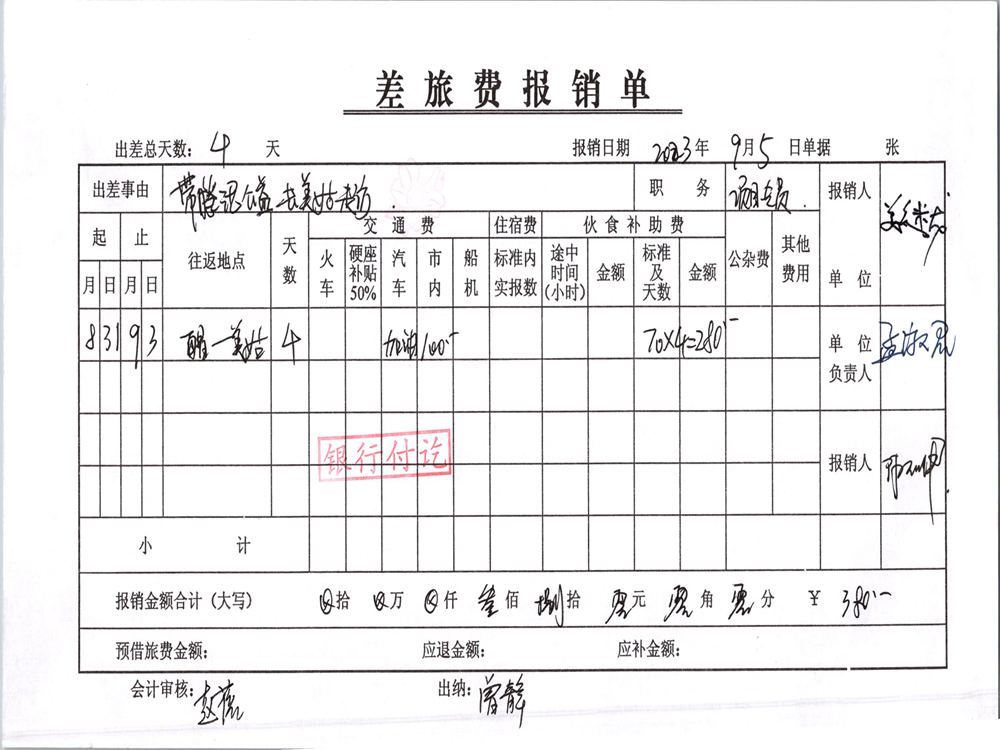 差旅费报销单
出差总天数: 4 天 报销日期 2023年 9月5 日单据 张
出差事由 带腾讯公益去美姑走访. 职务 项目专员. 报销人
起 止 往返地点 天数 交通费 住宿费 伙食补助费 公杂费 其他费用 单位
月 日 月 日 火车 硬座补贴50% 汽车 市内 船机 标准内实报数 途中时间(小时) 金额 标准及天数 金额
8 31 9 3 美姑 4 加油 100.- 70×4=280.- 单位负责人
银行付讫
报销人
小计
报销金额合计(大写) ⊗拾 ⊗万 ⊗仟 叁佰 捌拾 零元 零角 零分 ¥ 380.-
预借旅费金额: 应退金额: 应补金额:
会计审核: 出纳: 曾静